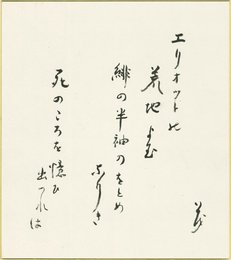 エリオットの
荒地よむ
緋の半袖のをとめ
ありき
死のころを憶ひ
出づれば